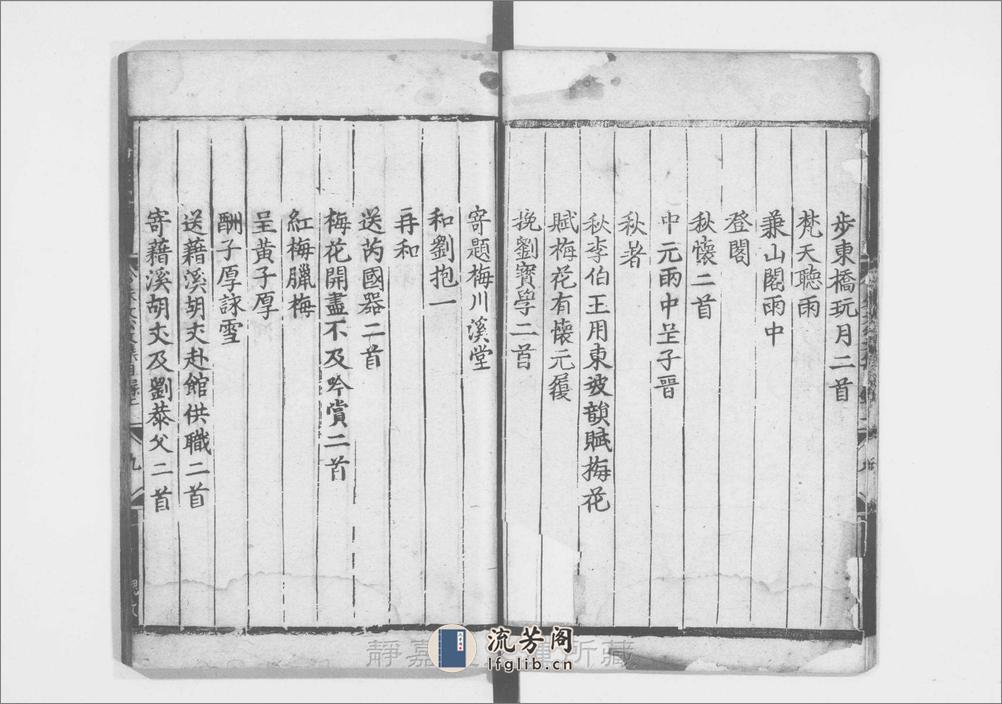 步東橋玩月二首
梵天聽雨
兼山閣雨中
登閣
秋懷二首
中元雨中呈子晉
秋暑
秋李伯王用東坡韻賦梅花
賦梅花有懷元履
挽劉寶學二首
寄題梅川溪堂
和劉抱一
再和
送芮國器二首
梅花開盡不及吟賞二首
紅梅臘梅
呈黃子厚
酬子厚詠雪
送藉溪胡丈赴館供職二首
寄藉溪胡丈及劉恭父二首
九
靜嘉 所藏
流芳阁
lfglib.cn